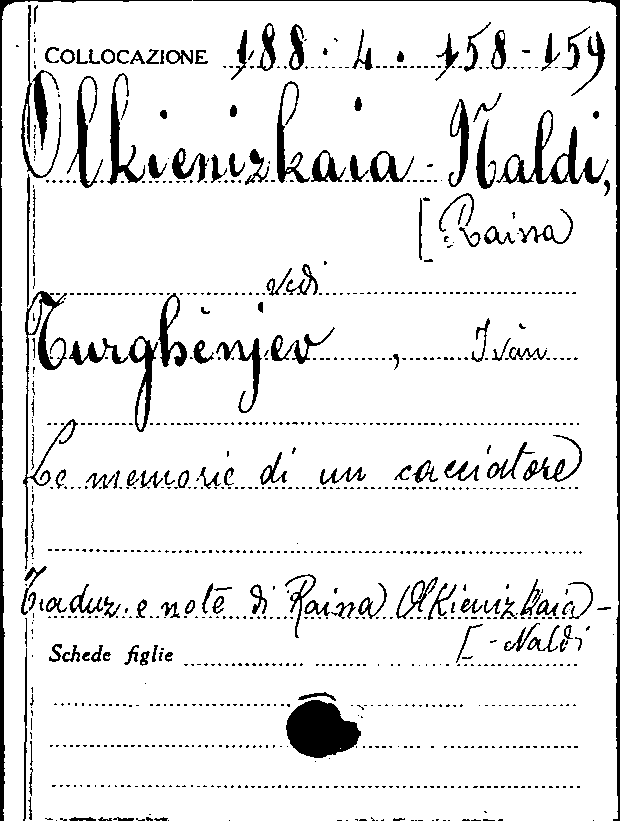 COLLOCAZIONE 188. 4. 158-159
Olkienizkaia-Naldi,
[Raissa
vedi
Turghènjev, Ivàn
Le memorie di un cacciatore
Traduz. e note di Raissa Olkienizkaia-
[-Naldi
Schede figlie